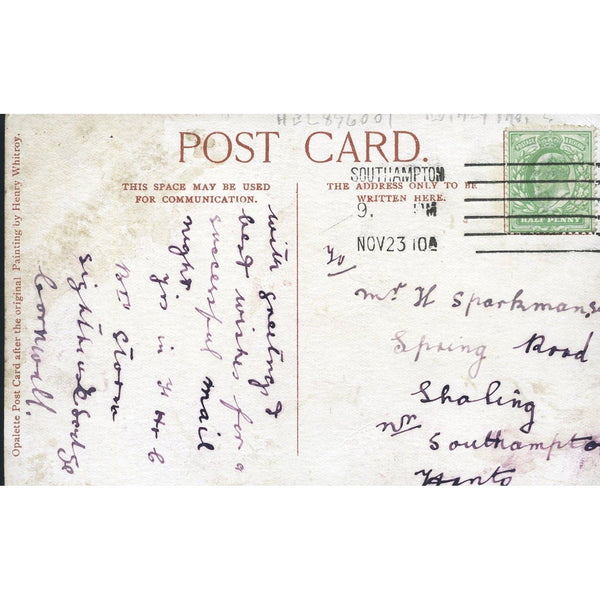 POST CARD.
THIS SPACE MAY BE USED
FOR COMMUNICATION.
THE ADDRESS ONLY TO BE
WRITTEN HERE.
SOUTHAMPTON
9. PM
NOV 23 10 A
POSTAGE REVENUE
HALF PENNY
with greetings &
best wishes for a
successful mail
night.
Yrs in
Storm
Cornwall.
To
Mr H Sparkman
Spring Road
Sholing
nr Southampton
Hants
Opalette Post Card after the original Painting by Henry Whitroy.